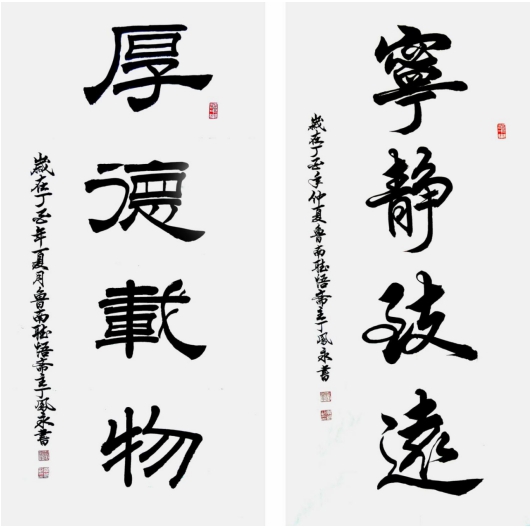 厚德載物
歲在丁酉年夏月魯南聴悟斋主丁鳳永書
寧静致遠
歲在丁酉年仲夏魯南聴悟斋主丁鳳永書